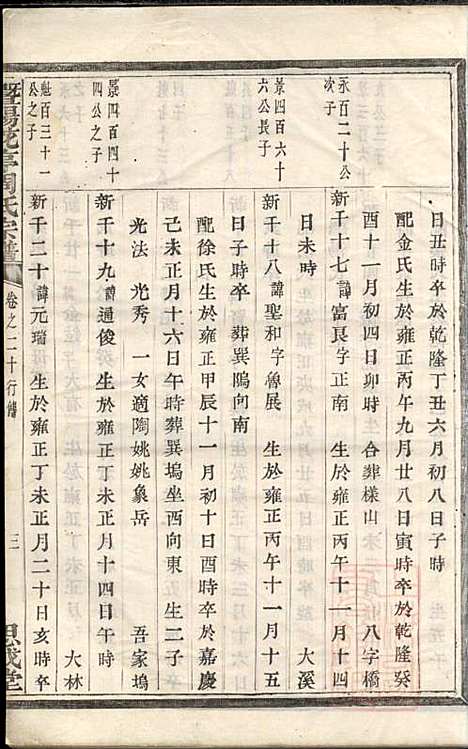 日丑時卒於乾隆丁丑六月初八日子時
配金氏生於雍正丙午九月廿八日寅時卒於乾隆癸
酉十一月初四日卯時 合葬樣山 八字橋
永百二十公次子
新千十七 諱富長字正南 生於雍正丙午十一月十四
日未時 大溪
景四百六十六公長子
新千十八 諱聖和字魯展 生於雍正丙午十一月十五
日子時卒 葬巽隖向南
配徐氏生於雍正甲辰十一月初十日酉時卒於嘉慶
己未正月十六日午時葬巽塢坐西向東 生二子
光法 光秀 一女適陶姚姚象岳 吾家塢
景四百四十四公之子
新千十九 諱通俊 生於雍正丁未正月十四日午時
魁百三十一公之子
新千二十 諱元瑞 生於雍正丁未正月二十日亥時卒 大林
暨陽花亭周氏宗譜
卷之二十行傳
三
思成堂